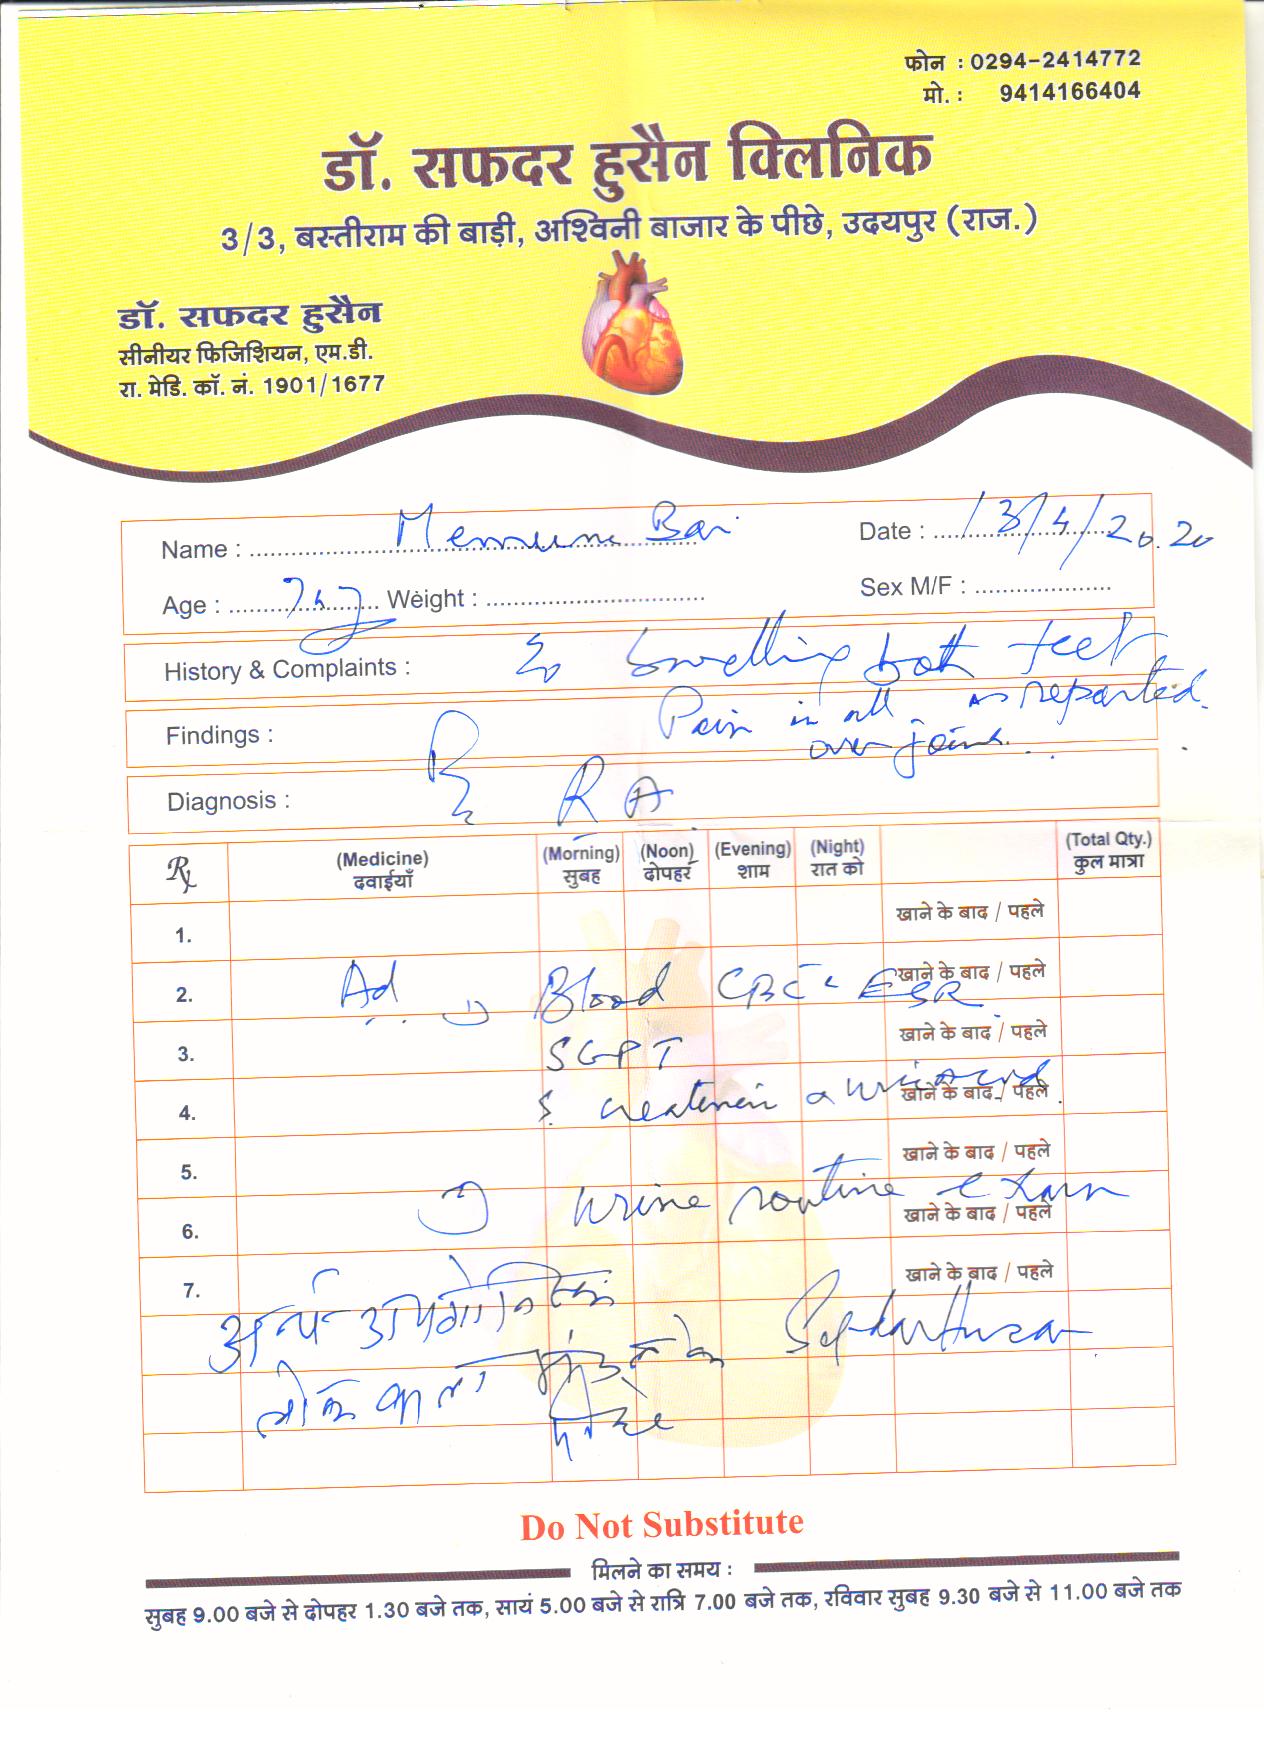 फोन : 0294-2414772
मो. : 9414166404
डॉ. सफदर हुसैन क्लिनिक
3/3, बस्तीराम की बाड़ी, अश्विनी बाजार के पीछे, उदयपुर (राज.)
डॉ. सफदर हुसैन
सीनीयर फिजिशियन, एम.डी.
रा. मेडि. कॉ. नं. 1901/1677
Name : Bai Date : 13/4/2020
Age : Weight : Sex M/F :
History & Complaints : Swelling both feet
as reported.
Findings : Pain in all
over joints.
Diagnosis : RA
Rx (Medicine) (Morning) (Noon) (Evening) (Night) (Total Qty.)
दवाईयाँ सुबह दोपहर शाम रात को कुल मात्रा
1. खाने के बाद / पहले
2. Ad 1) Blood CBC ESR खाने के बाद / पहले
3. SGPT खाने के बाद / पहले
4. S. creatinein uric acid खाने के बाद / पहले
5. खाने के बाद / पहले
6. urine routine exam खाने के बाद / पहले
7. खाने के बाद / पहले
Do Not Substitute
मिलने का समय :
सुबह 9.00 बजे से दोपहर 1.30 बजे तक, सायं 5.00 बजे से रात्रि 7.00 बजे तक, रविवार सुबह 9.30 बजे से 11.00 बजे तक